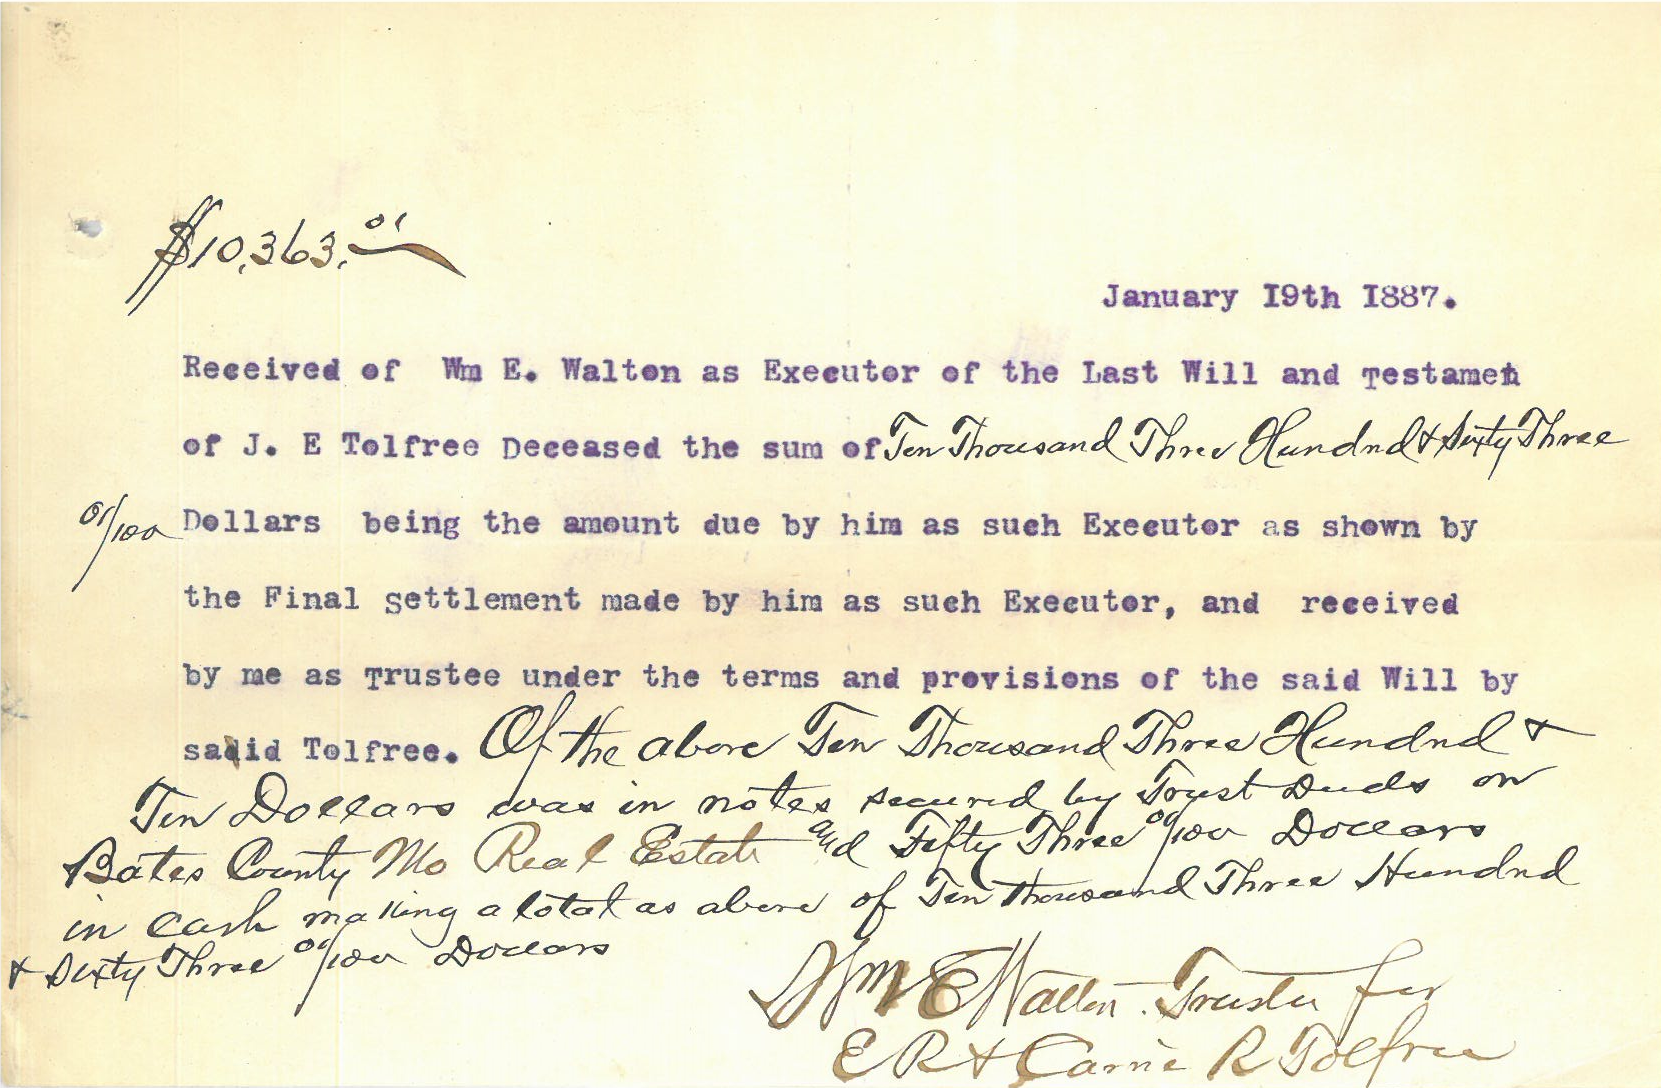 $10,363.01
January I9th I887.
Received of Wm E. Walton as Executor of the Last Will and Testamen
of J. E Tolfree Deceased the sum of Ten Thousand Three Hundred & Sixty Three
01/100 Dollars being the amount due by him as such Executor as shown by
the Final Settlement made by him as such Executor, and received
by me as Trustee under the terms and provisions of the said Will by
sadid Tolfree. Of the above Ten Thousand Three Hundred &
Ten Dollars was in notes secured by Trust Deeds on
Bates County Mo Real Estate and Fifty Three 01/100 Dollars
in cash making a total as above of Ten Thousand Three Hundred
& Sixty Three 01/100 Dollars
Wm E Walton. Trustee for
E R & Carrie R Tolfree